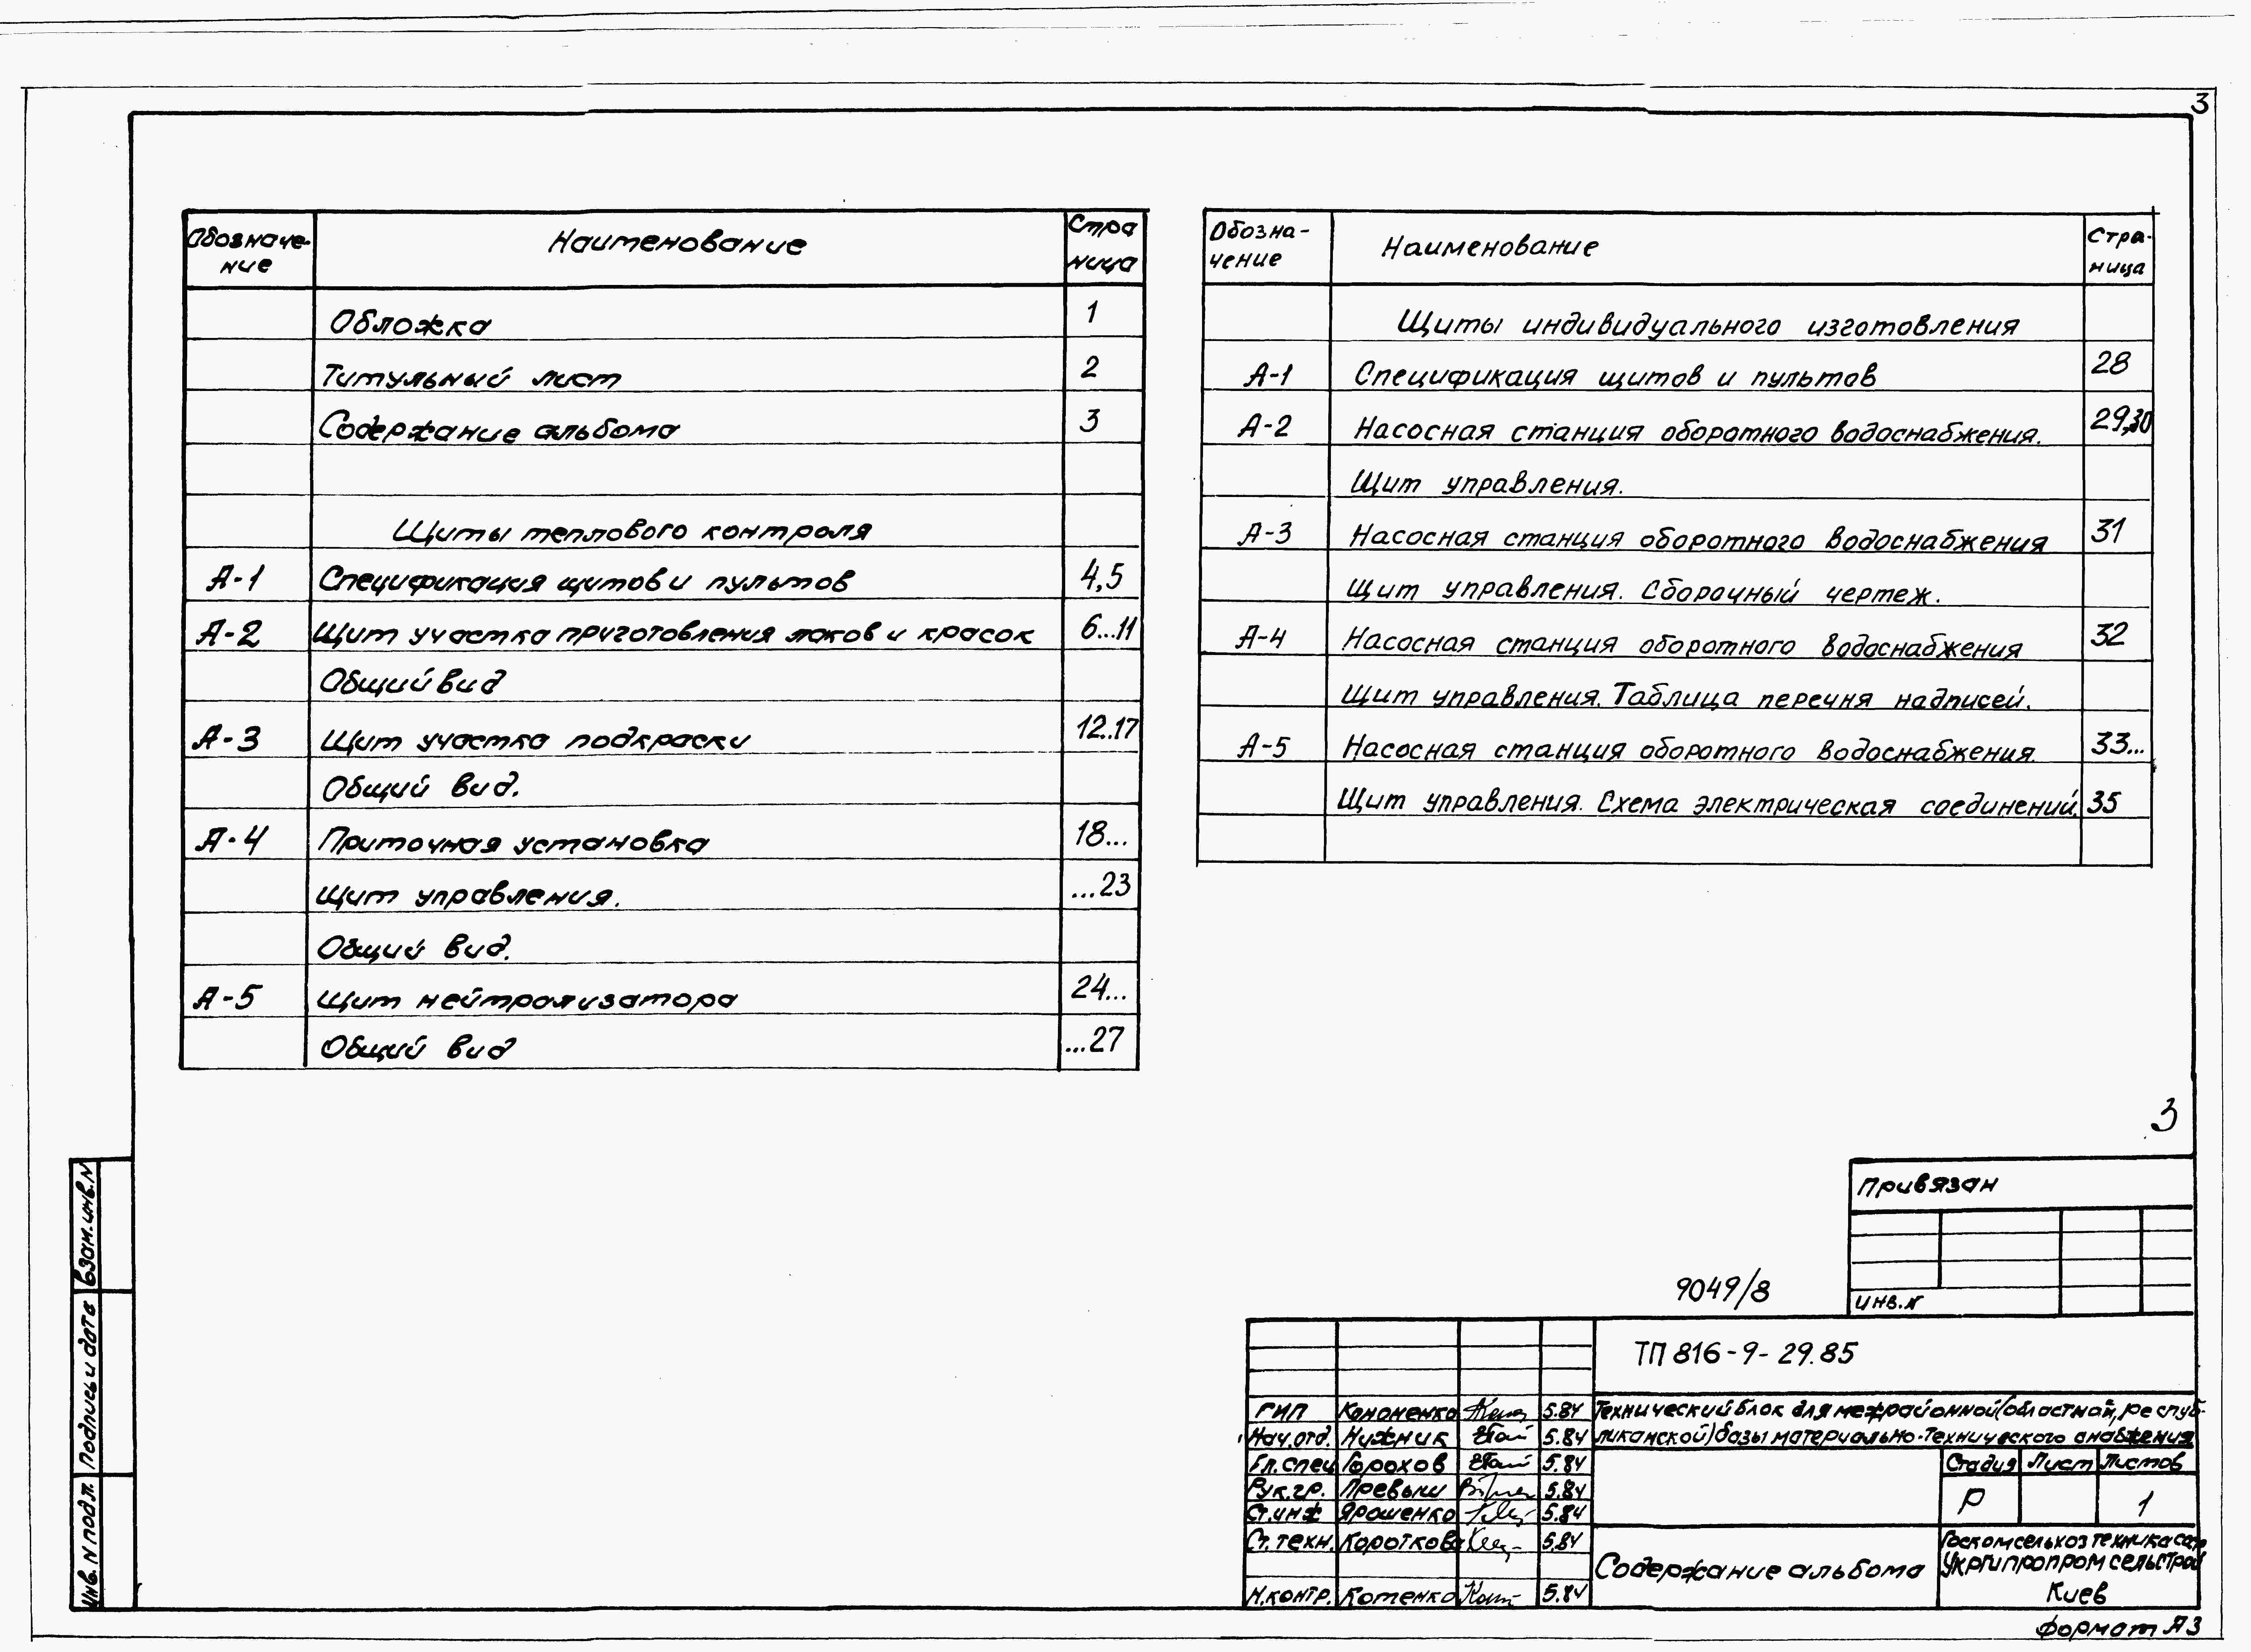 3
Обозначе-
ние
Наименование
Стра
ница
Обложка 1
Титульный лист 2
Содержание альбома 3
Щиты теплового контроля
А-1 Спецификация щитов и пультов 4,5
А-2 Щит участка приготовления лаков и красок 6...11
Общий вид
А-3 Щит участка подкраски 12..17
Общий вид.
А-4 Приточная установка 18...
Щит управления. ...23
Общий вид.
А-5 Щит нейтрализатора 24...
Общий вид ...27
Обозна-
чение
Наименование
Стра-
ница
Щиты индивидуального изготовления
А-1 Спецификация щитов и пультов 28
А-2 Насосная станция оборотного водоснабжения. 29,30
Щит управления.
А-3 Насосная станция оборотного водоснабжения 31
Щит управления. Сборочный чертеж.
А-4 Насосная станция оборотного водоснабжения 32
Щит управления. Таблица перечня надписей.
А-5 Насосная станция оборотного водоснабжения. 33...
Щит управления. Схема электрическая соединений. 35
3
Привязан
Инв.N
9049/8
ТП 816-9-29.85
Технический блок для межрайонной (областной, респуб-
ликанской) базы материально-технического снабжения
ГИП Кононенко 5.84
Нач.отд. Нужник 5.84
Гл.спец Горохов 5.84
Рук.гр. 5.84
Ст.инж Ярошенко 5.84
Ст.техн. Короткова 5.84
Н.контр. Котенко 5.84
Стадия Лист Листов
Р 1
Содержание альбома
Госкомсельхозтехника
Укргипропромсельстрой
Киев
Формат А3
Взам.инв.N
Подпись и дата
Инв. N подл.